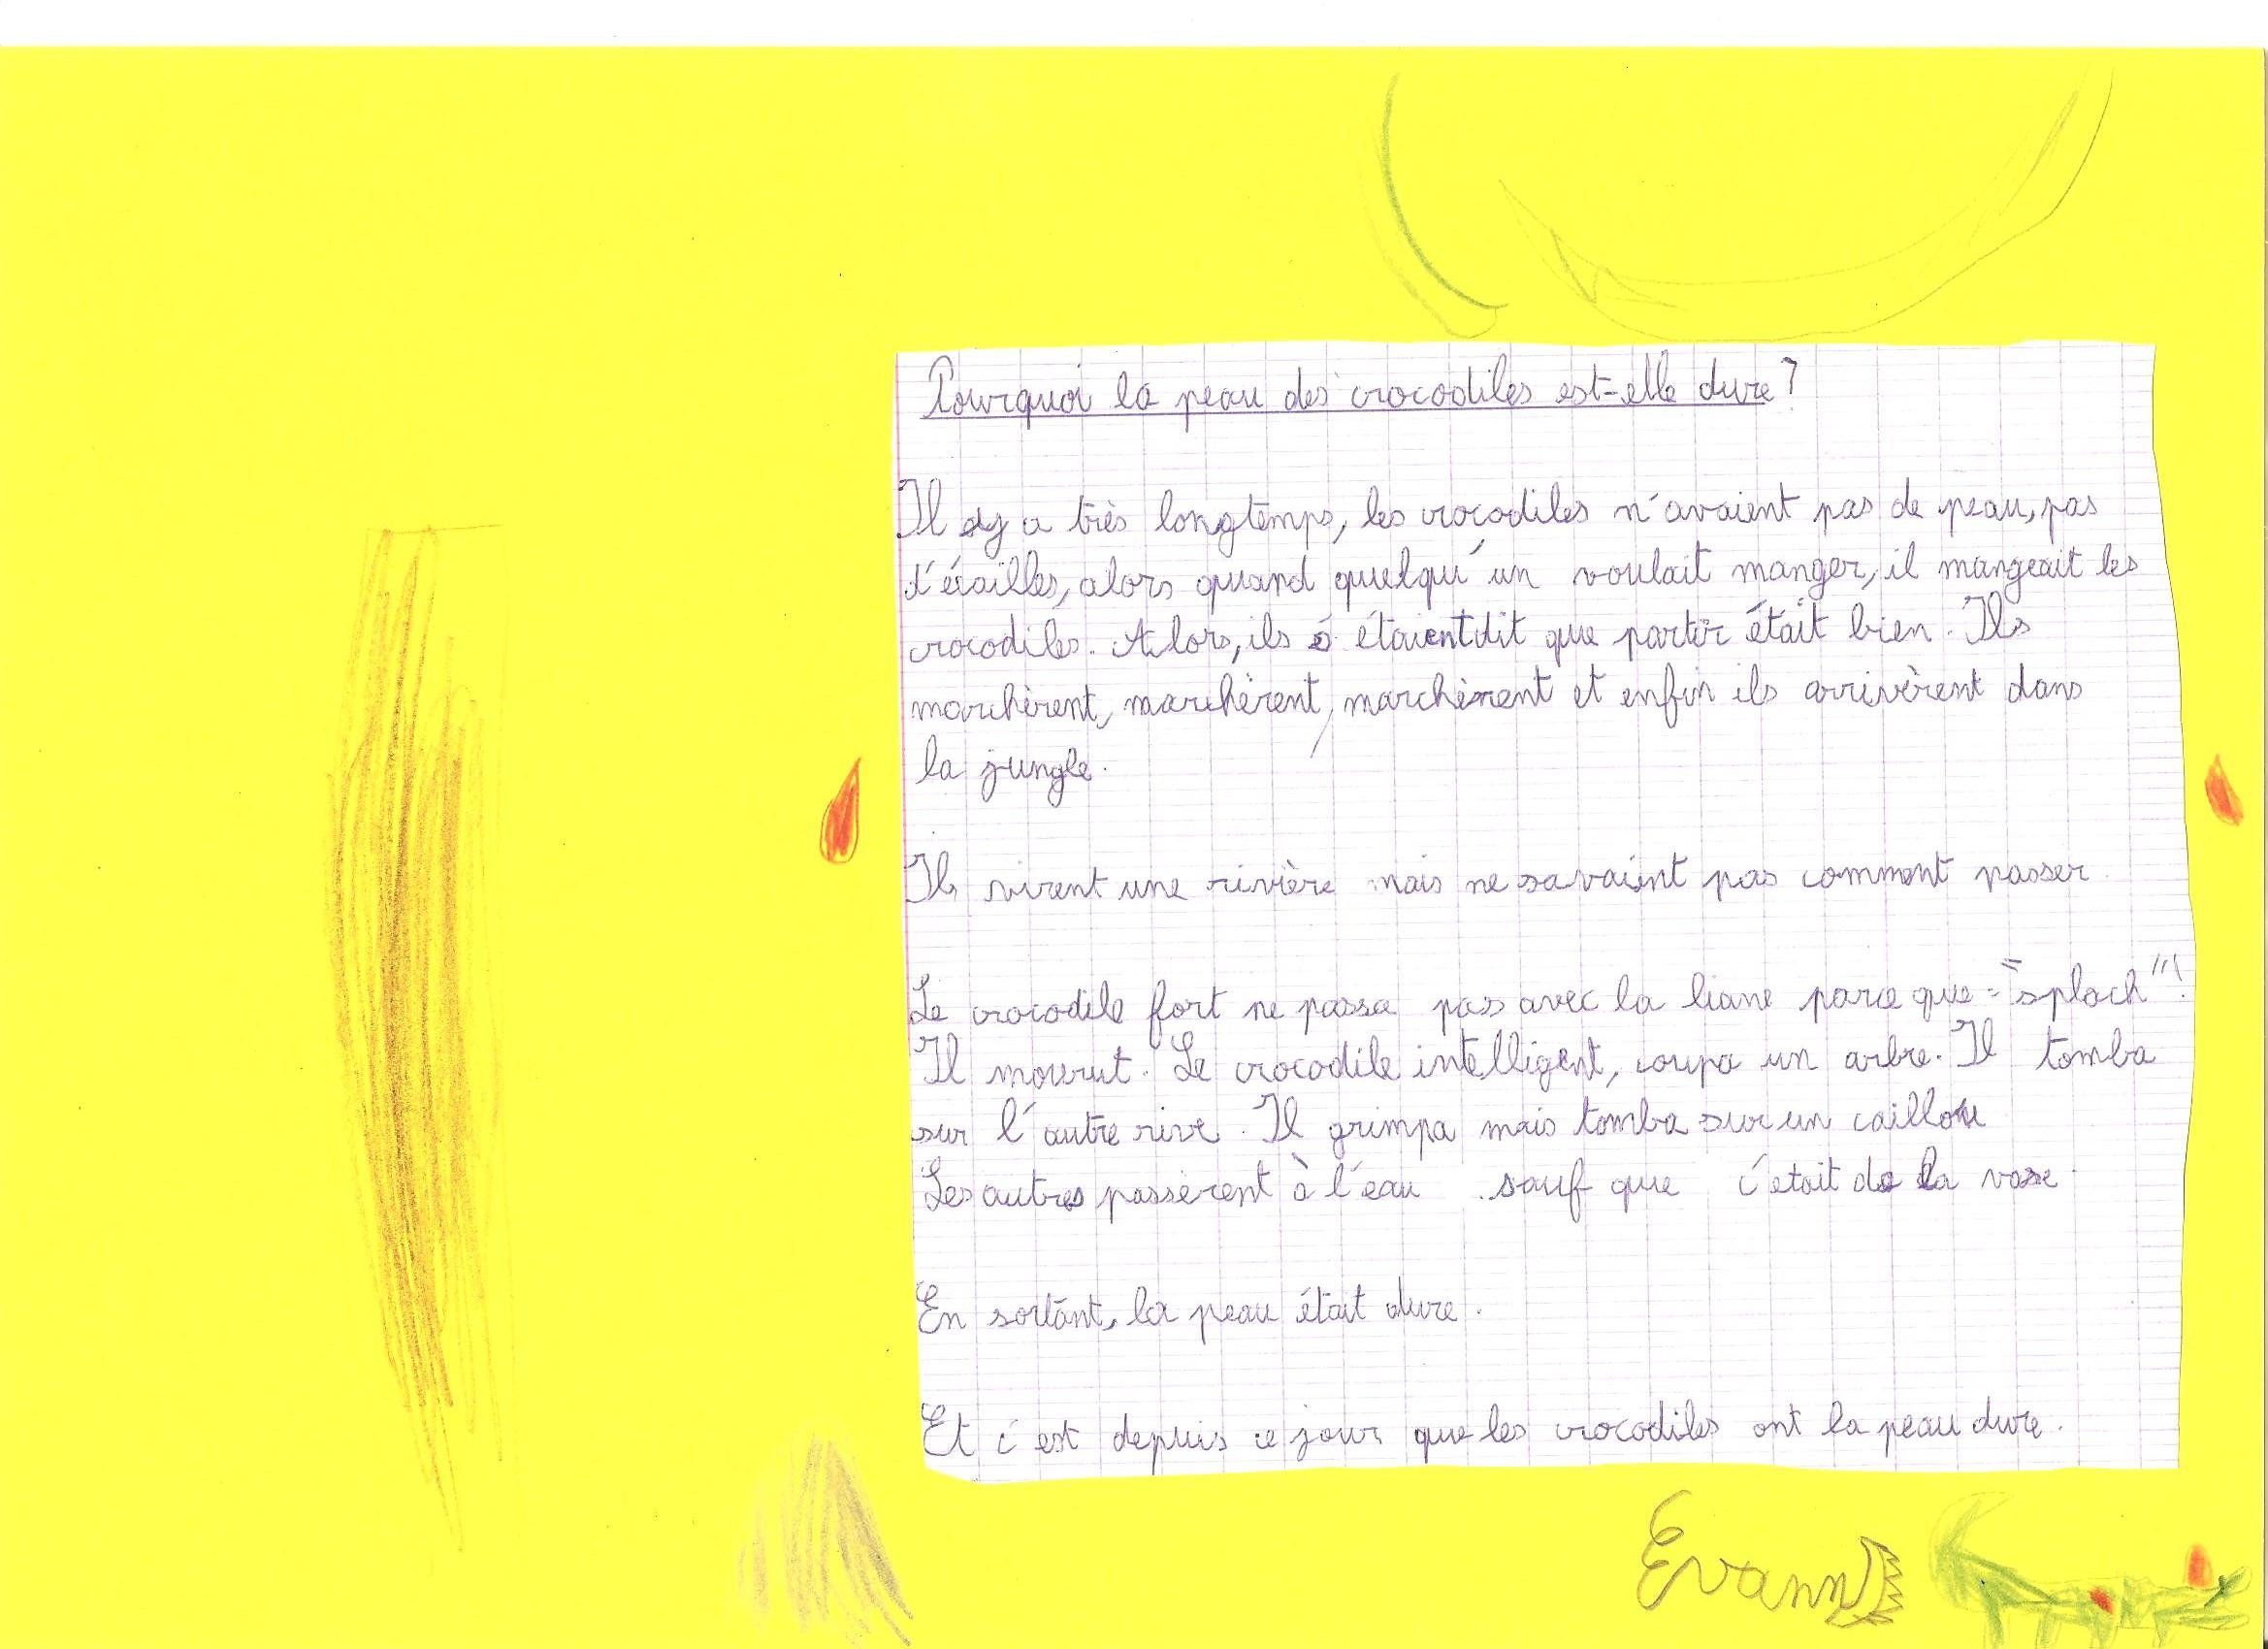 Pourquoi la peau des crocodiles est-elle dure ?
Il y a très longtemps, les crocodiles n'avaient pas de peau, pas
d'écailles, alors quand quelqu'un voulait manger, il mangeait les
crocodiles. Alors, ils s'étaient dit que partir était bien. Ils
marchèrent, marchèrent, marchèrent et enfin ils arrivèrent dans
la jungle.
Ils virent une rivière mais ne savaient pas comment passer.
Le crocodile fort ne passa pas avec la liane parce que = "sploch"!!!
Il mourut. Le crocodile intelligent, coupa un arbre. Il tomba
sur l'autre rive. Il grimpa mais tomba sur un caillou
Les autres passèrent à l'eau sauf que c'était de la vase.
En sortant, la peau était dure.
Et c'est depuis ce jour que les crocodiles ont la peau dure.
Evann